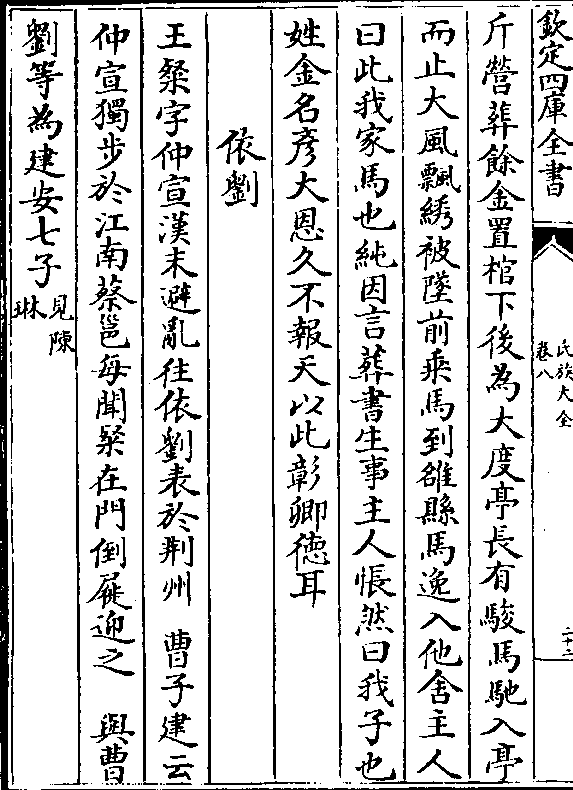 欽定四庫全書
氏族大全
卷八
二十二
斤營葬餘金置棺下後為大度亭長有駿馬馳入亭
而止大風飄綉被墜前乘馬到雒縣馬逸入他舍主人
曰此我家馬也純因言葬書生事主人悵然曰我子也
姓金名彥大恩久不報天以此彰卿德耳
依劉
王粲字仲宣漢末避亂往依劉表於荆州 曹子建云
仲宣獨步於江南蔡邕每聞粲在門倒屣迎之 與曹
劉等為建安七子見陳琳